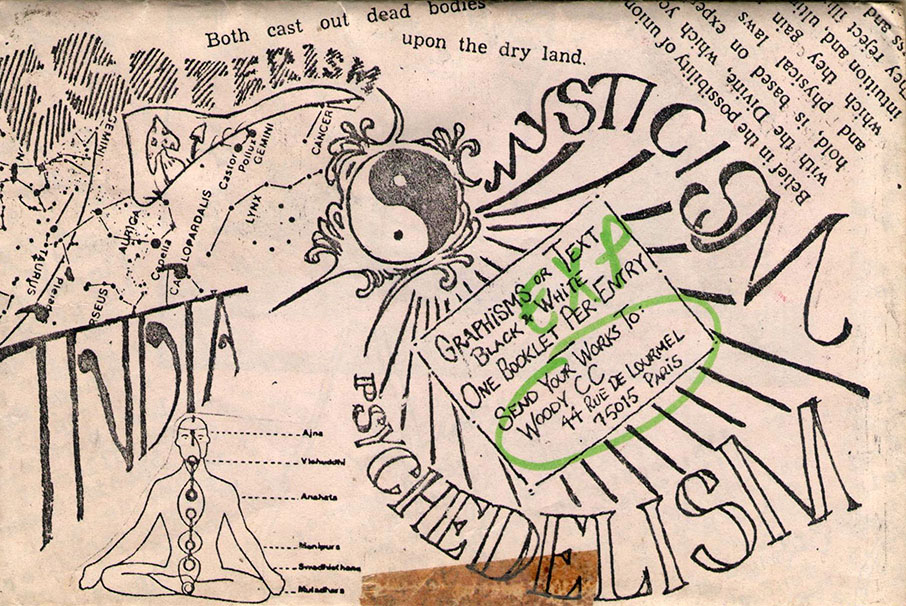 Both cast out dead bodies
upon the dry land.
ESOTERISM
MYSTICISM
Belief in the possibility of union
with the Divine, which
hold, is based on
and physical laws
which they gain
intuition and
they reject
GEMINI
Castor
Pollux
GEMINI
CANCER
LYNX
AURIGA
Capella
CAMELOPARDALIS
TAURUS
PERSEUS
INDIA
GRAPHISMS OR TEXT
BLACK & WHITE
ONE BOOKLET PER ENTRY
SEND YOUR WORKS TO:
WOODY CC
44 RUE DE LOURMEL
75015 PARIS
EXP
PSYCHEDELISM
Ajna
Vishuddhi
Anahata
Manipura
Swadhisthana
Muladhara